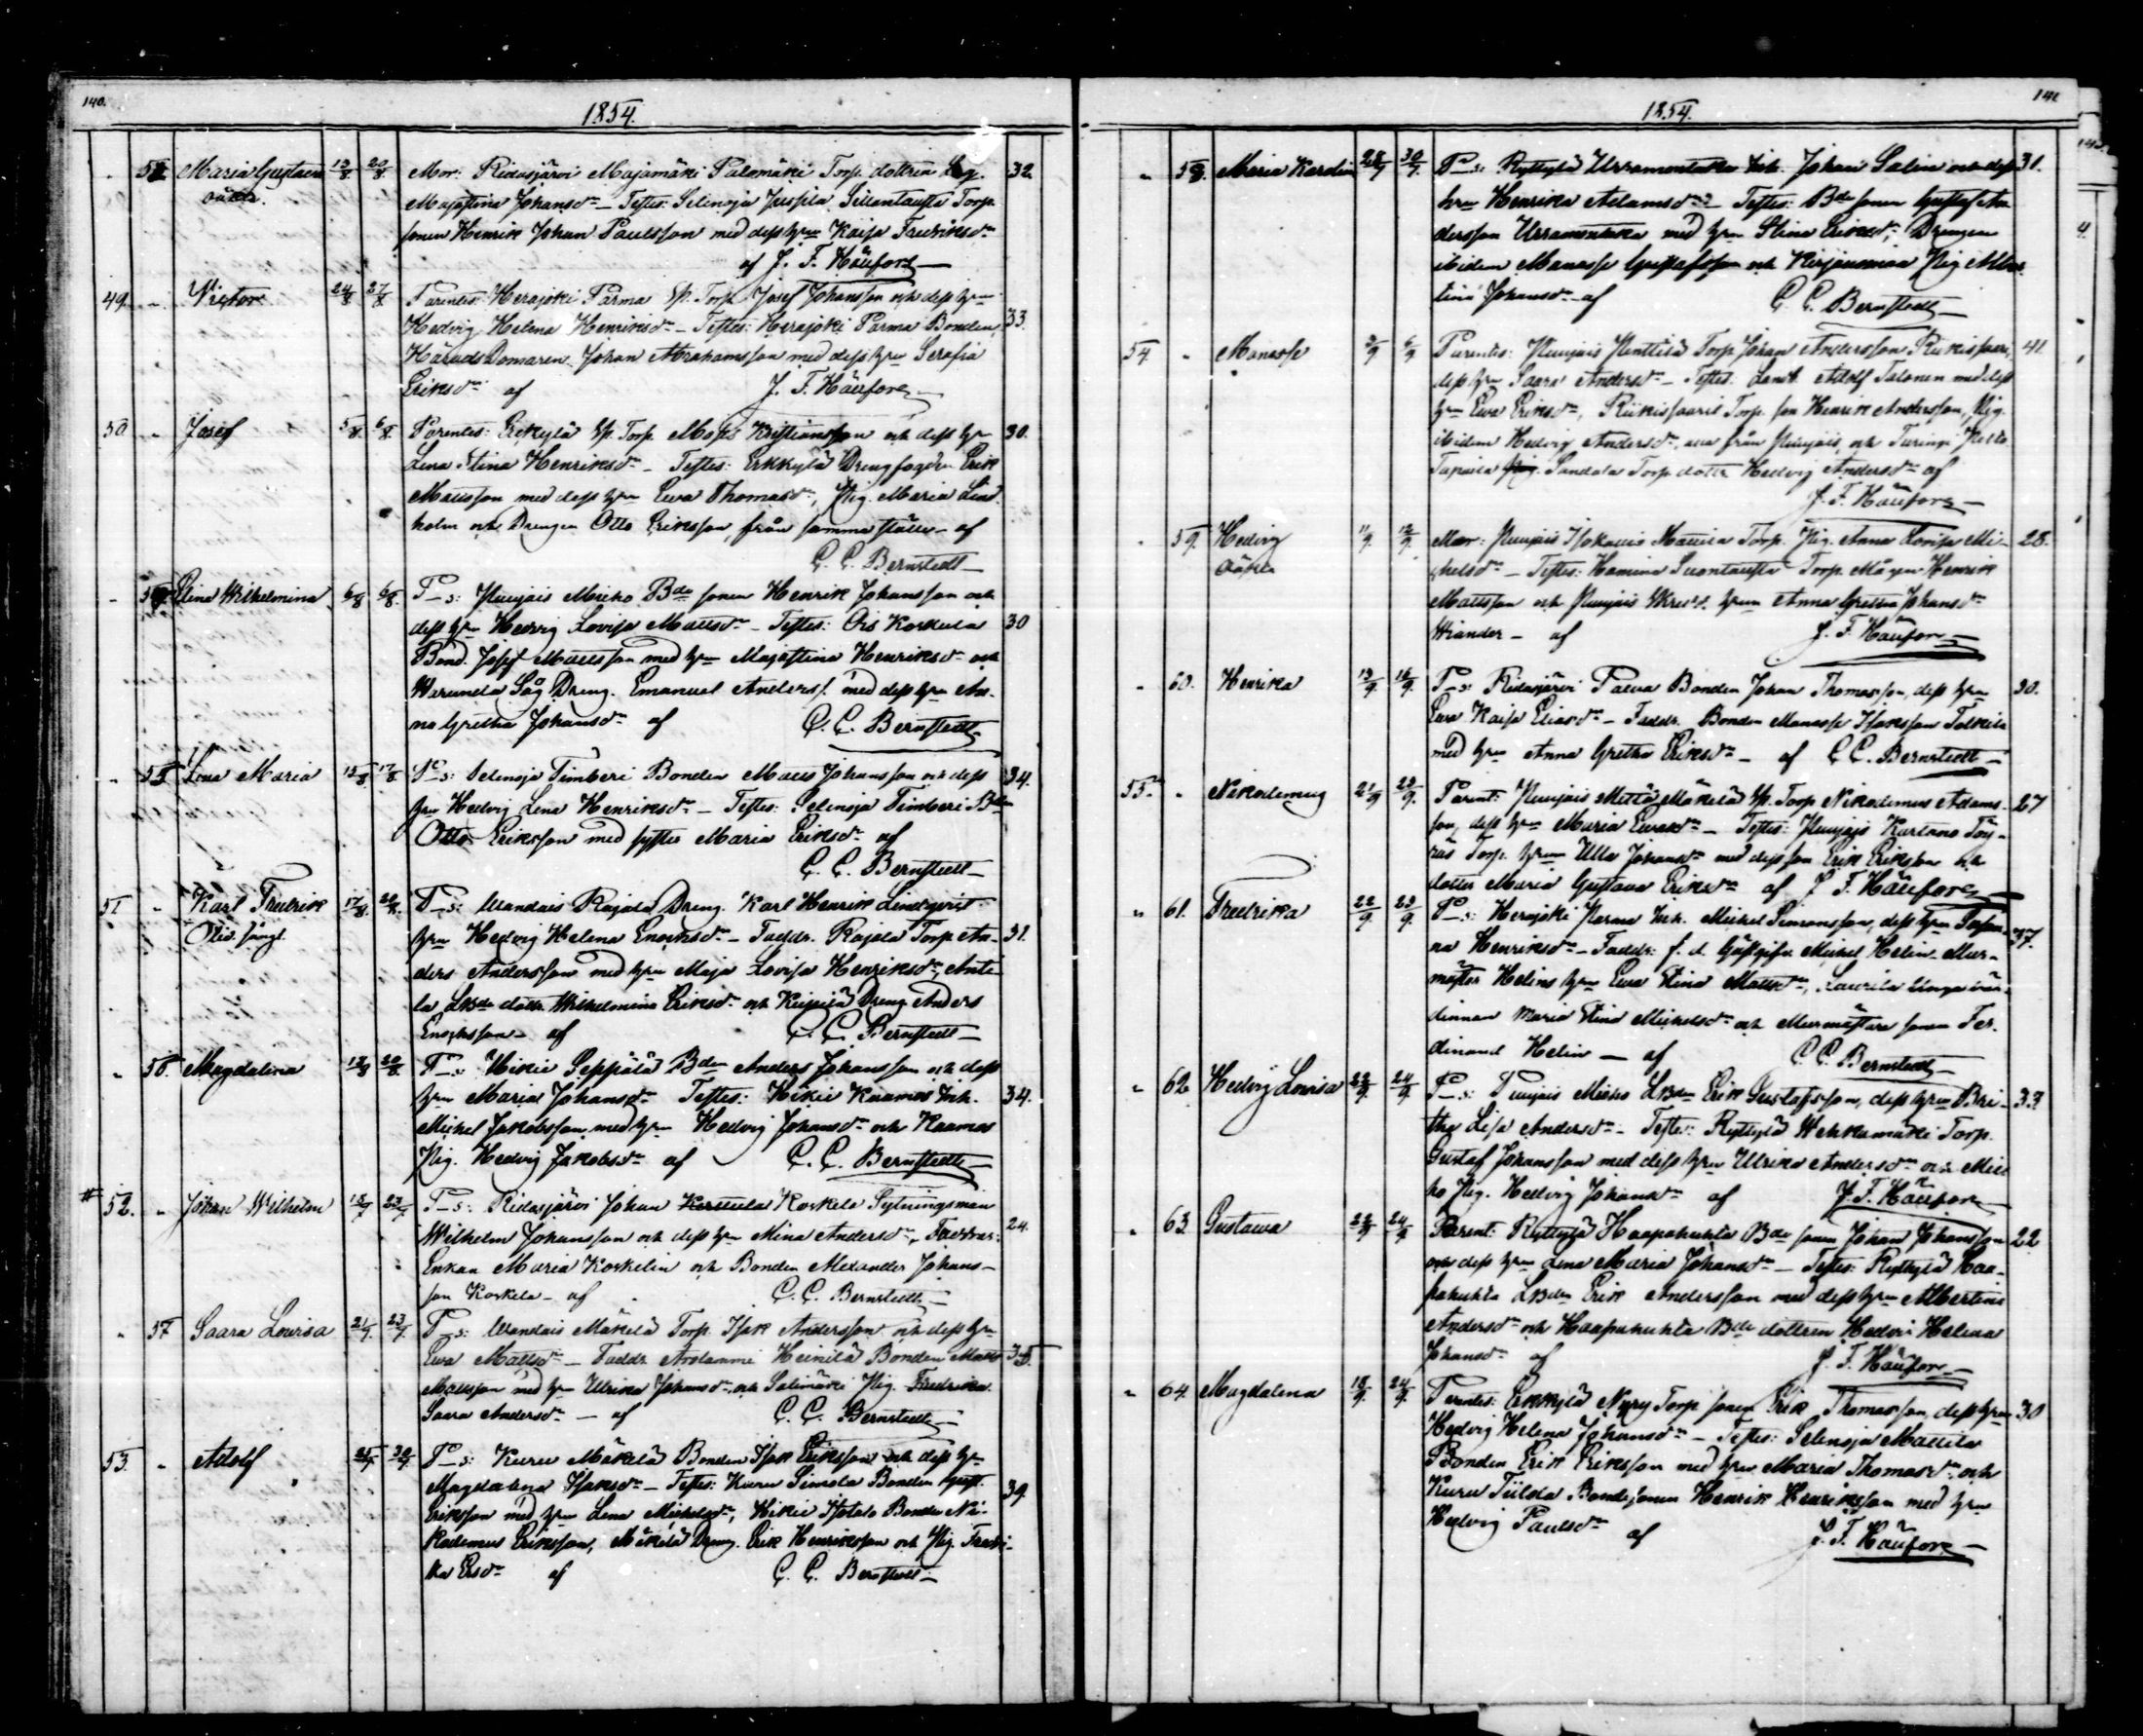 140.
1854.
Maria Gustava 13/8 20/8 Mor: Ridasjärvi Majamäki Palomäki Torp. dottren Pig. 32.
oäkta. Majastina Johansdr – Testes: Selinoja Seppilä Torp
sonen Henrik Johan Paulsson med dess hru Kaisa Fredriksdr
af J. F. Häufors
49. " Victor 24/8 27/8 Parentes: Herajoki Parma Sp. Torp. Josef Johansson och dess hru
Hedvig Helena Henriksdr – Testes: Herajoki Parma Bonden, 33.
HäradsDomaren Johan Abrahamsson med dess hru Serafia
Eriksdr af J. F. Häufors
50 " Josef 5/8 6/8 Parentes: Erkylä Sp. Torp. Mats Kristiansson och dess hru 30.
Lena Stina Henriksdr – Testes: Erkkylä Drengfogden Erik
Matsson med dess hru Ewa Thomasdr, Pig. Maria Lind-
holm och Drengen Otto Eriksson, från samma ställe – af
C. C. Bernstedt
Elina Wilhelmina 6/8 6/8 P–s: Punjais Mieho Bde sonen Henrik Johansson och
dess hru Hedvig Lovisa Matsdr – Testes: Ois Korkula 30
Bond. Josef Matsson med hru Majastina Henriksdr och
Såg Dreng. Emanuel Anderss. med dess hru An-
na Gretha Johansdr af C. C. Bernstedt
" 55 Lena Maria 15/8 17/8 P–s: Selinoja Timberi Bonden Mats Johansson och dess 34.
hru Hedvig Lena Henriksdr – Testes: Selinoja Timberi Bden
Otto Eriksson med syster Maria Eriksdr af
C. C. Bernstedt
51 " Karl Fredrik 17/8 20/8 P–s: Wandais Rajala Dreng. Karl Henrik Lindqvist
hru Hedvig Helena Enoksdr – Faddr. Rajala Torp. An- 31.
ders Andersson med hru Maja Lovisa Henriksdr, Anti-
la dottr. Wilhelmina Eriksdr och Dreng Anders
Enoksson – af C. C. Bernstedt
" 56. Magdalina 18/8 20/8 P–s: Hikiä Seppälä Bden Anders Johansson och dess
hru Maria Johansdr Testes: Hikiä Kaamos Inh. 34.
Michel Jakobsson med hru Hedvig Johansdr och Kaamos
Pig. Hedvig Jakobsdr af C. C. Bernstedt
# 52. " Johan Wilhelm 18/7 23/7 P–s: Ridasjärvi Johan Koskela Sytningsman
Wilhelm Johansson och dess hru Mina Andersdr, Faddrar: 24.
Enkan Maria Koskelin och Bonden Alexander Johans-
son Koskela – af C. C. Bernstedt
" 57 Saara Lovisa 21/7 23/7 P–s: Wandais Mäkelä Torp. Isak Andersson och dess hru
Ewa Matsdr – Faddr. Arolammi Heinilä Bonden Mats 35.
Matsson med hru Ulrika Johansdr och Salimäki Pig. Fredrika
Saara Andersdr – af C. C. Bernstedt
53. " Adolf 30/7 P–s: Kuru Mäkelä Bonden Isak Eriksson och dess hru
Magdalina Isaksdr – Testes: Kuru Simola Bonden Gust. 39.
Eriksson med hru Lena Michelsdr, Hikiä Isotalo Bonden Ni-
kodemus Eriksson, Mäkelä Dreng. Erik Henriksson och Pig. Fredri-
ka Ersdr af C. C. Bernstedt
141
1854.
" 58. Maria Karolin 30/7 P–s: Ryttylä Urramontaka Inh. Johan Salin och dess 31.
hru Henrika Adamsdr – Testes: Bde sonen Gustaf An-
dersson Urramontaka med hru Stina Eriksdr, Drengen
ibidem Manasse Gustafsson och Pig Alber-
tina Johansdr af C. C. Bernstedt
54 " Manasse 3/9 6/9 Parentes: Punjais Penttilä Torp Johan Andersson Riikissaari, 41.
dess hru Saara Andersdr – Testes: Adolf Talonen med dess
hru Ewa Eriksdr, Riikissaari Torp. son Henrik Andersson, Pig.
ibidem Hedvig Andersdr, alla från Punjais, och Turingi
Sandala Torp. dottr. Hedvig Andersdr af
J. F. Häufors
" 59. Hedvig 11/9 12/9 Mor: Punjais Mattila Torp. Pig. Anna Lovisa Mi- 28.
oäkta chelsdr – Testes: Hamina Suontausta Torp. Mågen Henrik
Matsson och Punjais hru Anna Gretha Johansdr
af J. F. Häufors
" 60. Henrika 13/9 16/9 P–s: Ridasjärvi Paeva Bonden Johan Thomasson, dess hru 30.
Ewa Kaisa Eliasdr – Faddr. Bonden Manasse Isaksson Tolkila
med hru Anna Gretha Eriksdr – af C. C. Bernstedt
55. " Nikodemus 21/9 23/9 Parent: Punjais Mäkelä Sp. Torp Nikodemus Adams- 27
son, dess hru Maria Ewasdr – Testes: Punjais Kartano Töy-
räs Torp. hru Ulla Johansdr med dess son Erik Eriksson och
dotter Maria Gustava Eriksdr af J. F. Häufors
" 61. Fredrika 22/9 23/9 P–s: Herajoki Parma Inh. Michel Simonsson, dess hru Susan- 37.
na Henriksdr – Faddr: f. d. Gästgifv. Michel Helin, Mur-
mäster Helins hru Ewa Stina Matsdr, Laurila Unga vär-
dinnan Maria Stina Michelsdr och Murmästare sonen Fer-
dinand Helin – af C. C. Bernstedt
" 62 Hedvig Lovisa 22/9 24/9 P–s: Punjais Mieho LBden Erik Gustafsson, dess hru Bri- 33
tha Lisa Andersdr – Testes: Ryttylä Wehkamäki Torp.
Gustaf Johansson med dess hru Ulrika Andersdr och Mie-
ho Pig. Hedvig Johansdr af J. F. Häufors
" 63. Gustawa 22/9 24/9 Parent: Ryttylä Haapahuhta Bde sonen Johan Johansson 22
och dess hru Lena Maria Johansdr – Testes: Ryttylä Haa-
pahuhta LBden Erik Andersson med dess hru Albertina
Andersdr och Haapahuhta Bde dottren Hedvi Helena
Johansdr af J. F. Häufors
" 64. Magdalena 18/9 24/9 Parentes: Erkkylä Nyry Torp sonen Erik Thomasson, dess hru 30
Hedvig Helena Johansdr – Testes: Selinoja Mattila
Bonden Erik Eriksson med hru Maria Thomasdr och
Kuru Tiilola Bondesonen Henrik Henriksson med hru
Hedvig Paulsdr af J. F. Häufors